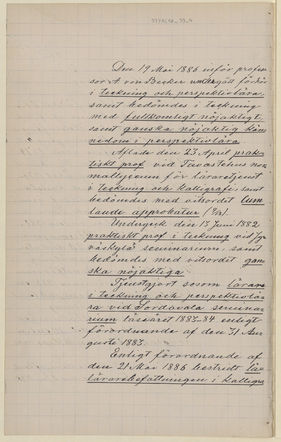 Den 19 Mai 1886 inför profes
sor A von Becker undergått förhör
i teckning och perspektivlära
samt bedömdes i teckning
med fullkomligt nöjaktigt
samt ganska nöjaktig kän
nedom i perspektivlära
Aflade den 23 April prak
tiskt prof vid Tavastehus nor
mallyceum för läraretjenst
i teckning och kalligrafi samt
bedömdes med vitsordet cum
laude approbatur
Undergick den 13 Juni 1882
praktiskt prof i teckning vid Jy
väskylä seminarium samt
bedömdes med vitsordet gan
ska nöjaktiga.
Tjenstgjort såsom lärare
i teckning och perspektivlä
ra vid Sordavala semina
rium läseåret 1883-84 enligt
förordnande af den 31 Au
gusti 1883.
Enligt förordnande af
den 21 Mai 1886 bestridt
lärarebefattningen i kalligra